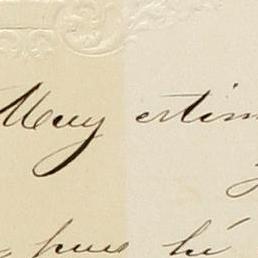 Muy estim
pues hé